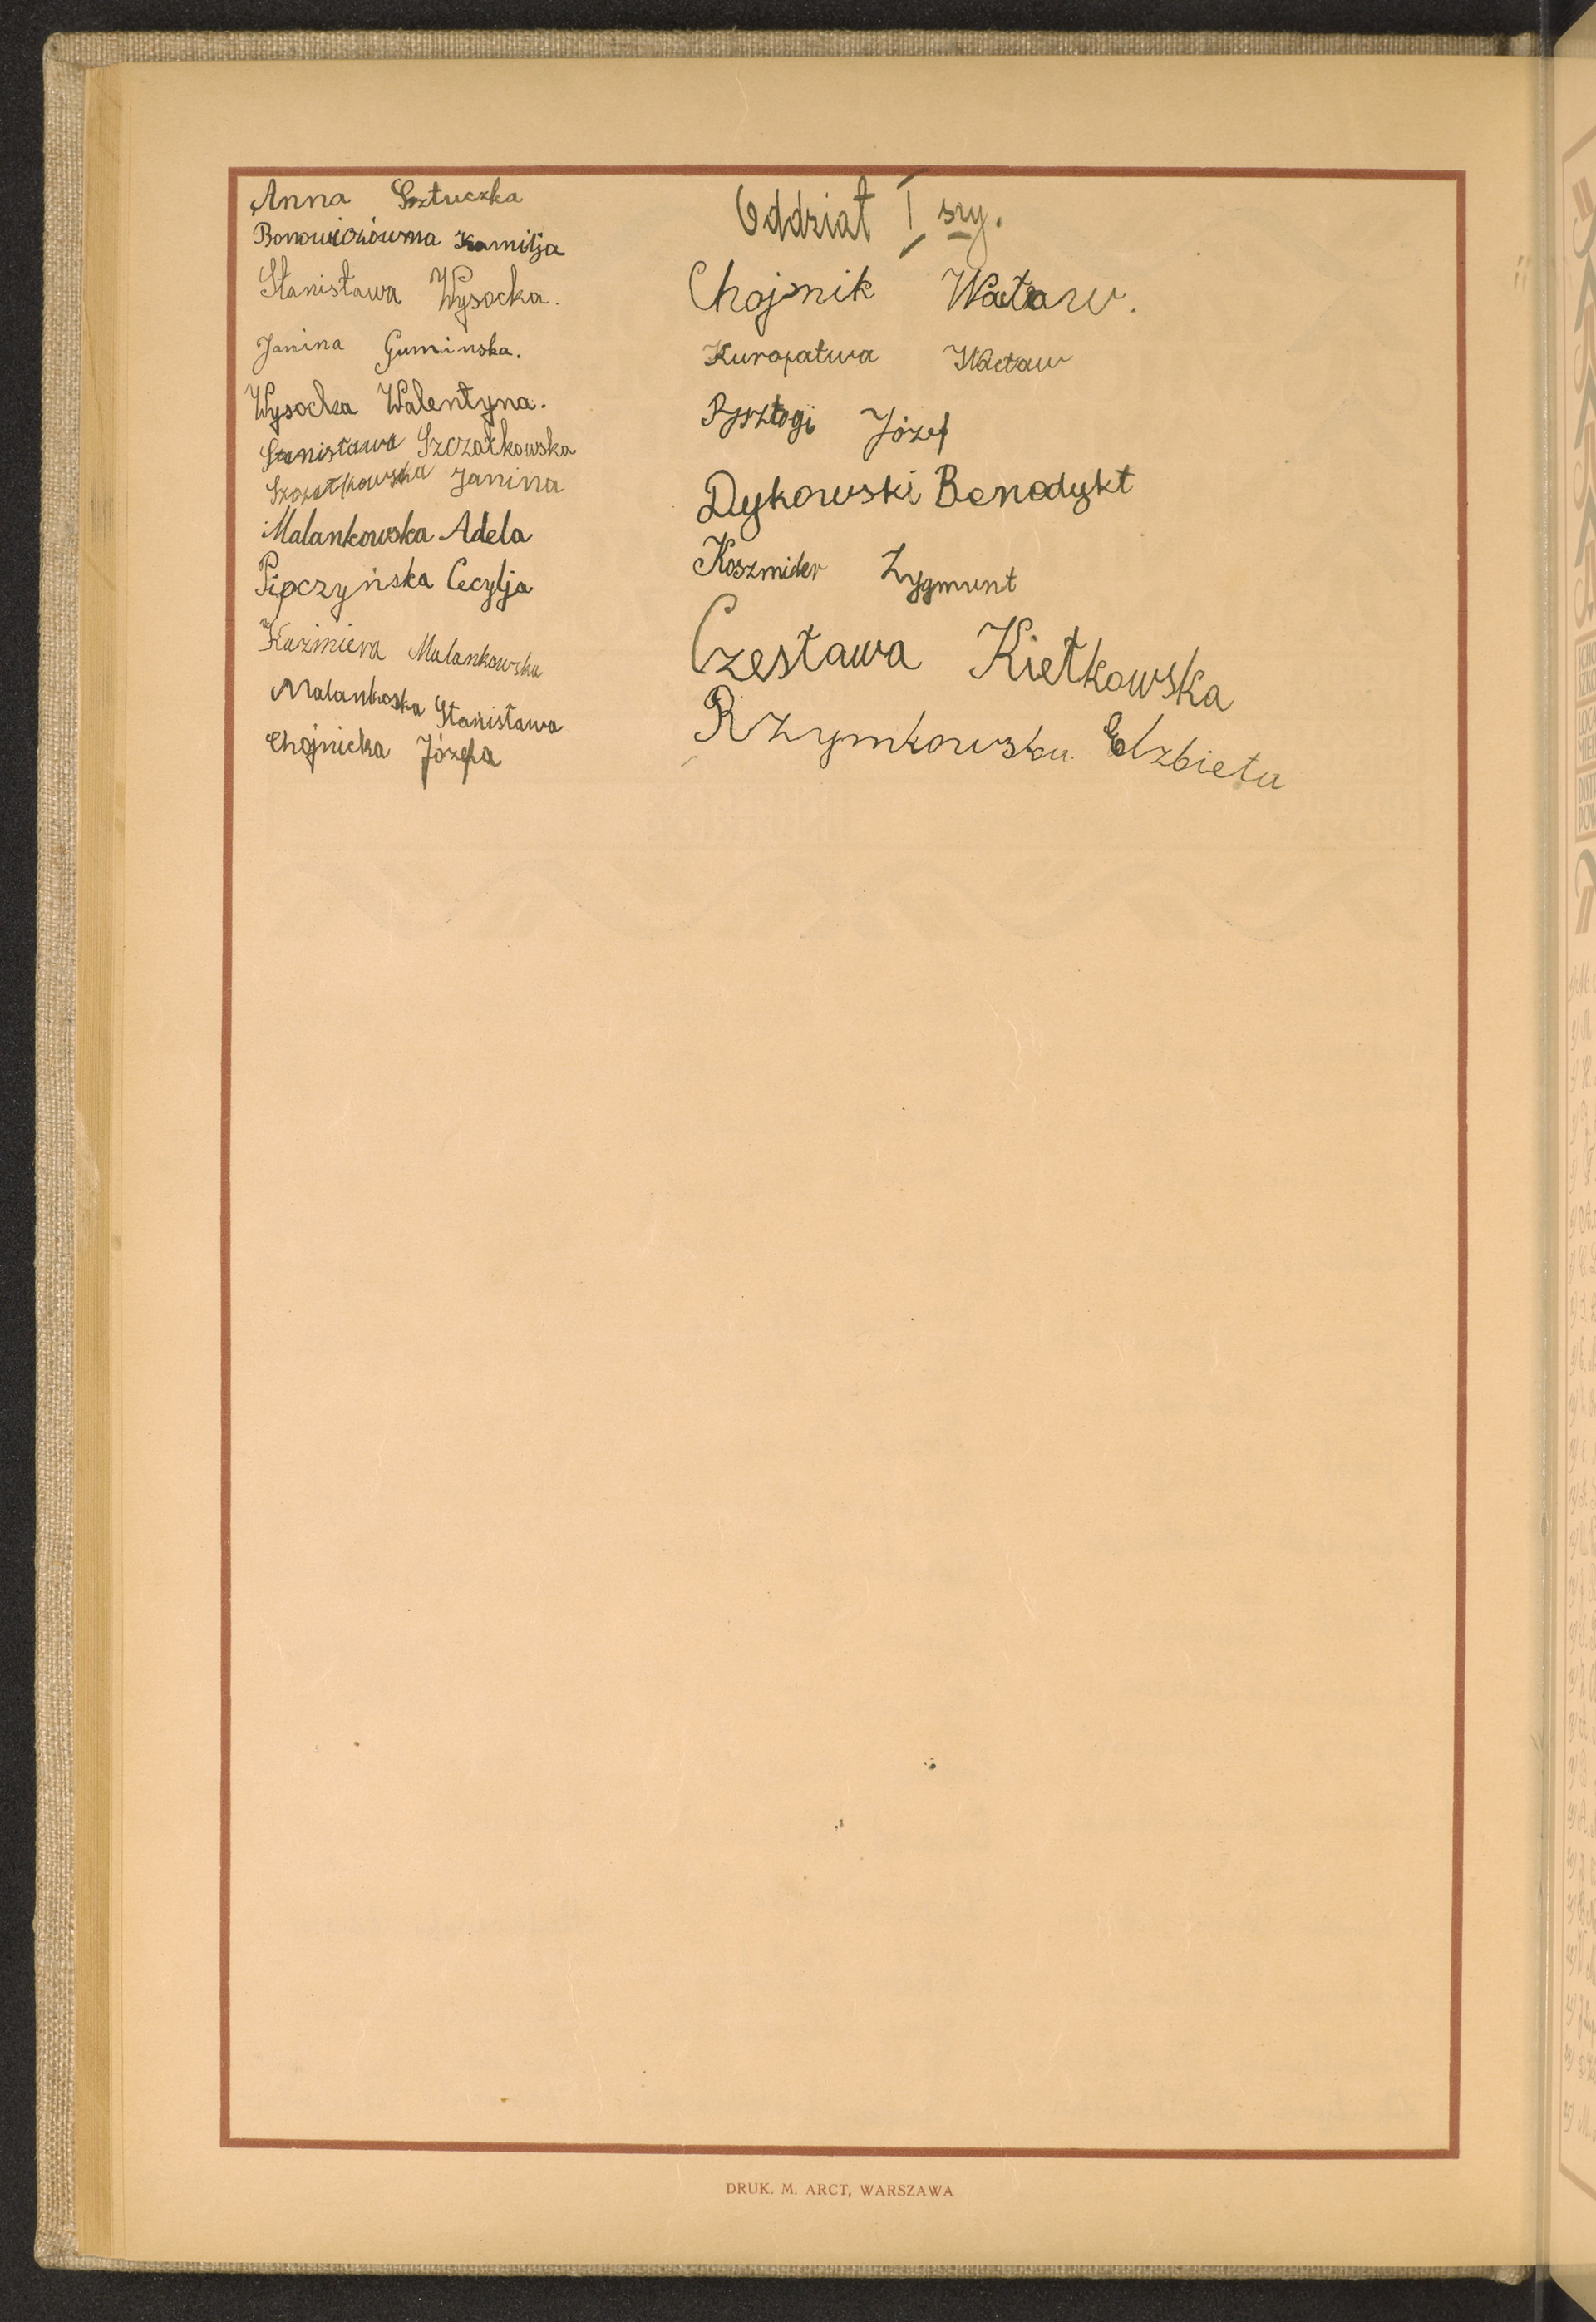 Anna Sztuczka
Bonowiczówna Kamilja
Stanisława Wysocka.
Janina Guminska.
Wysocka Walentyna.
Stanisława Szczałkowska
Janina
Malankowska Adela
Pipczyńska Cecylja
Kazimiera Malankowska
Malankoska Stanisława
Chojnicka Józefa
Oddział I szy.
Chojnik
Kuropatwa Wacław
Józef
Dykowski Benedykt
Koszmider Zygmunt
Czesława Kiełkowska
Rzymkowska Elzbieta
DRUK. M. ARCT, WARSZAWA